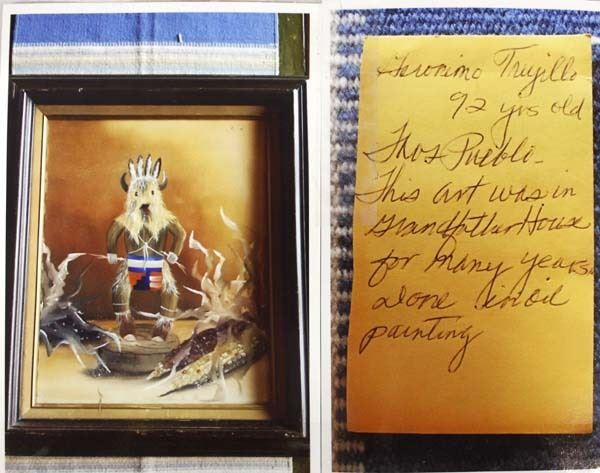 Geronimo Trujillo
92 yrs old
Thos Pueblo-
This art was in
Grandfather House
for many years.
Done in oil
painting